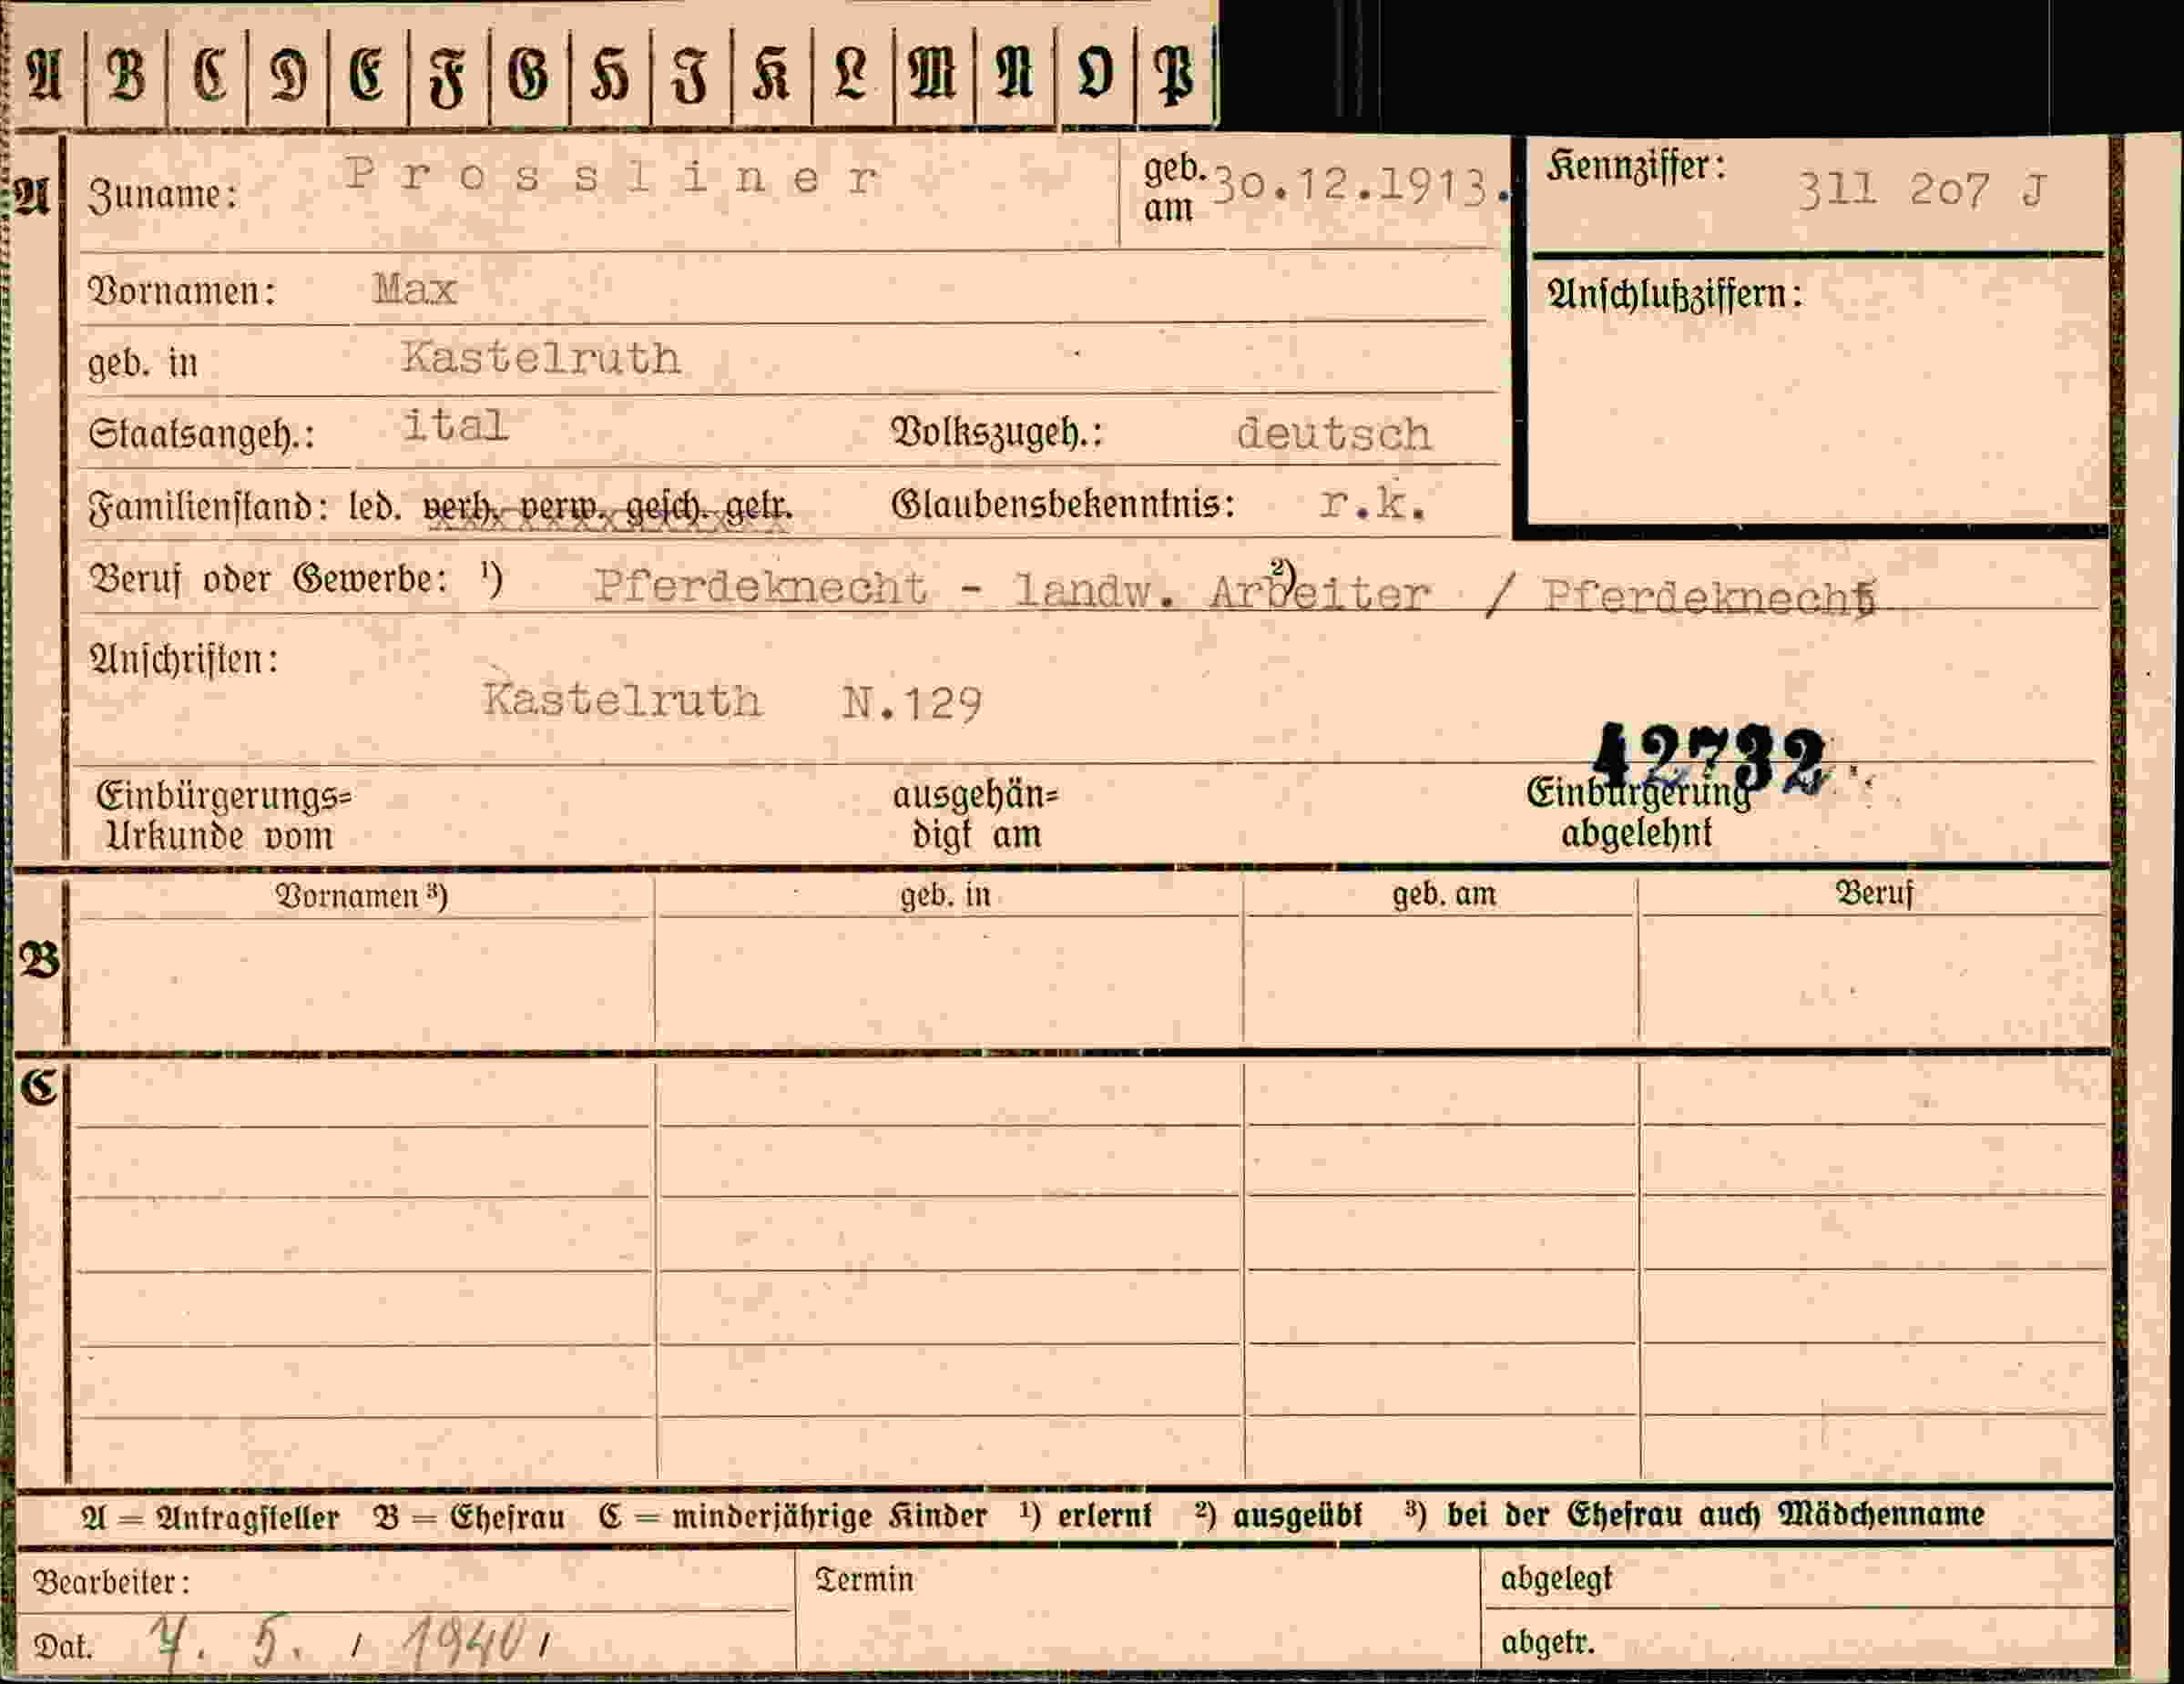 A B C D E F G H I K L M N O P
A Zuname: Prossliner geb. am 30.12.1913. Kennziffer: 311 207 J
Vornamen: Max Anschlußziffern:
geb. in Kastelruth
Staatsangeh.: ital Volkszugeh.: deutsch
Familienstand: led. verh. verw. gesch. getr. Glaubensbekenntnis: r.k.
Beruf oder Gewerbe: ¹) Pferdeknecht - landw. Arbeiter ²) / Pferdeknecht
Anschriften:
Kastelruth N.129
42732
Einbürgerungs= ausgehän= Einbürgerung
Urkunde vom digt am abgelehnt
Vornamen ³) geb. in geb. am Beruf
B
C
A = Antragsteller B = Ehefrau C = minderjährige Kinder ¹) erlernt ²) ausgeübt ³) bei der Ehefrau auch Mädchenname
Bearbeiter: Termin abgelegt
Dat. 7. 5. 1940 abgetr.